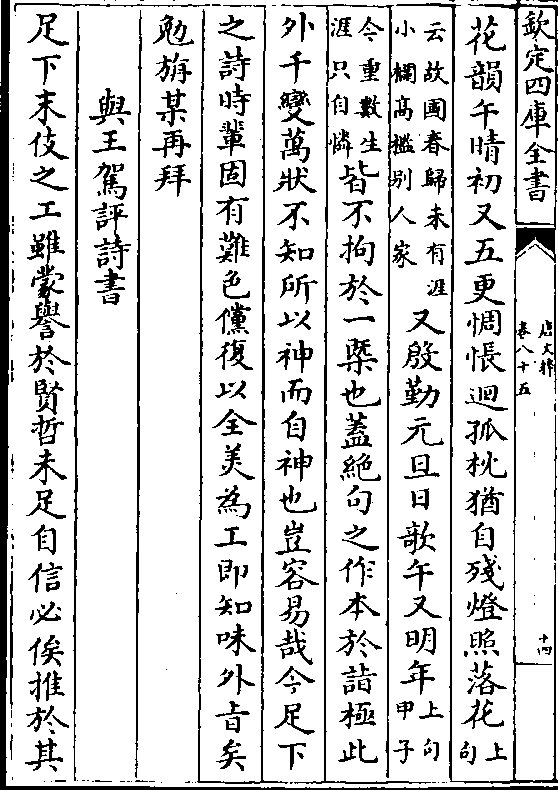 欽定四庫全書
唐文粹
卷八十五
十四
花韻午晴初又五更惆悵迴孤枕猶自殘燈照落花上句
云故國春歸未有涯小欄高檻别人家又殷勤元旦日歌午又明年上句甲子
今重數生涯只自憐皆不拘於一槩也蓋絕句之作本於詣極此
外千變萬狀不知所以神而自神也豈容易哉今足下
之詩時輩固有難色儻復以全美為工即知味外㫖矣
勉旃某再拜
與王駕評詩書
足下末伎之工雖蒙譽於賢哲未足自信必俟推於其